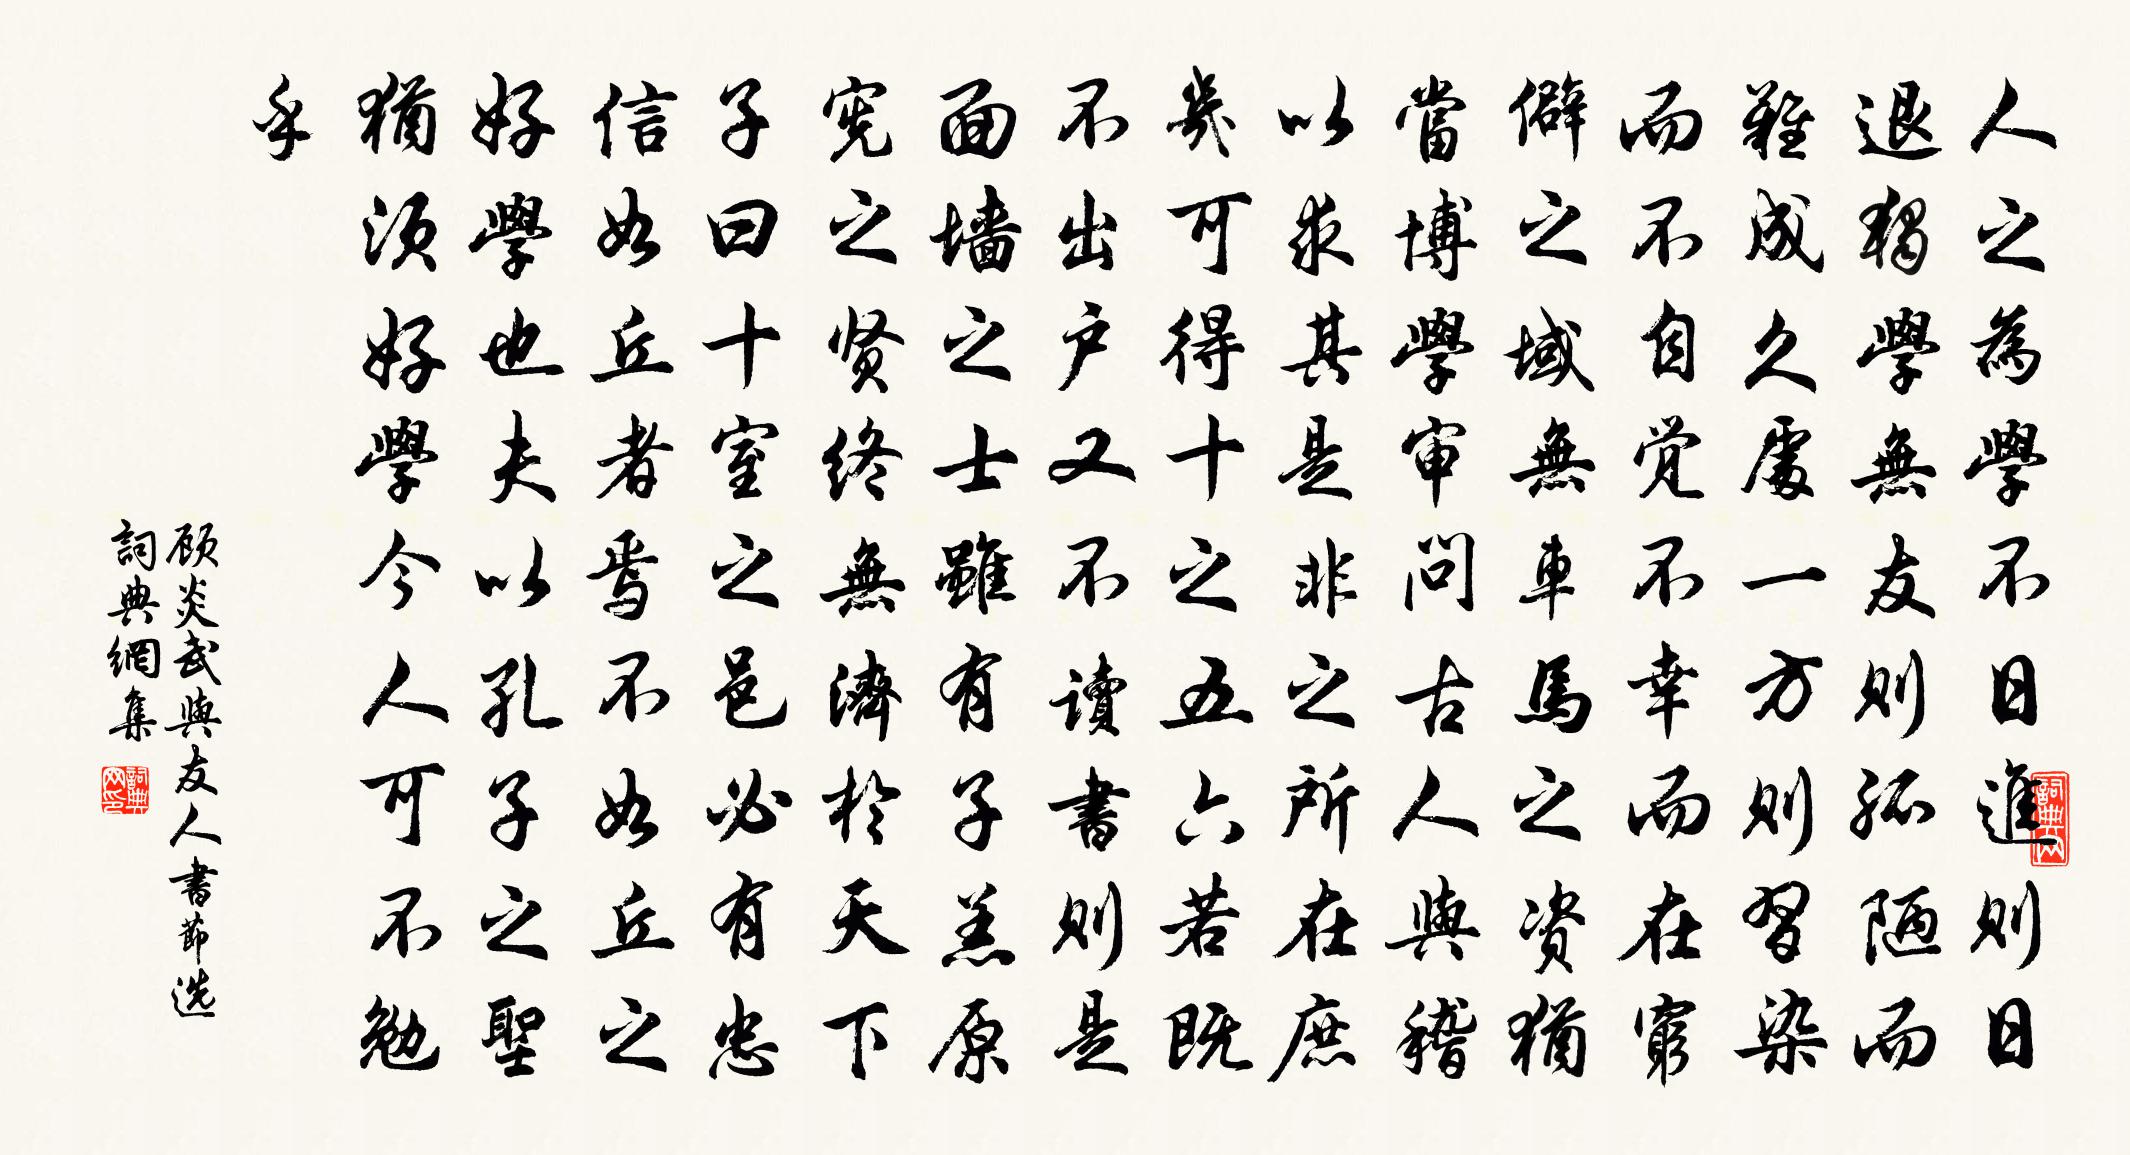 人之為學不日進則日
退獨學無友則孤陋而
難成久處一方則習染
而不自觉不幸而在窮
僻之域無車馬之资猶
當博學审問古人與稽
以求其是非之所在庶
幾可得十之五六若既
不出户又不讀書則是
面墙之士雖有子羔原
宪之贤終無濟於天下
子曰十室之邑必有忠
信如丘者焉不如丘之
好學也夫以孔子之聖
猶須好學今人可不勉
乎
顾炎武與友人書節选
詞典網集
詞典网
詞典网印